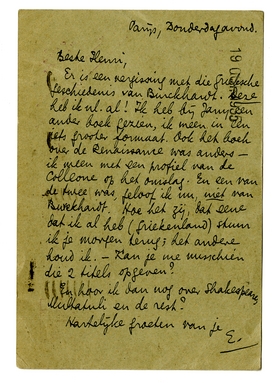 Parijs, Donderdagavond.
Beste Henri,
Er is een vergissing met die grieksche
geschiedenis van Burckhardt. Deze
heb ik nl. al! Ik heb bij Jany een
ander boek gezien, ik meen in een
iets grooter formaat. Ook het boek
over de Renaissance was anders —
ik meen met een profiel van de
Colleone op het omslag. En een van
de twee was, geloof ik nu, niet van
Burckhardt. Hoe het zij, dat eene
dat ik al heb (Griekenland) stuur
ik je morgen terug; het andere
houd ik. — Kan je me misschien
die 2 titels opgeven?
En hoor ik dan nog over Shakespeare,
Multatuli en de rest?
Hartelijke groeten van je
E.